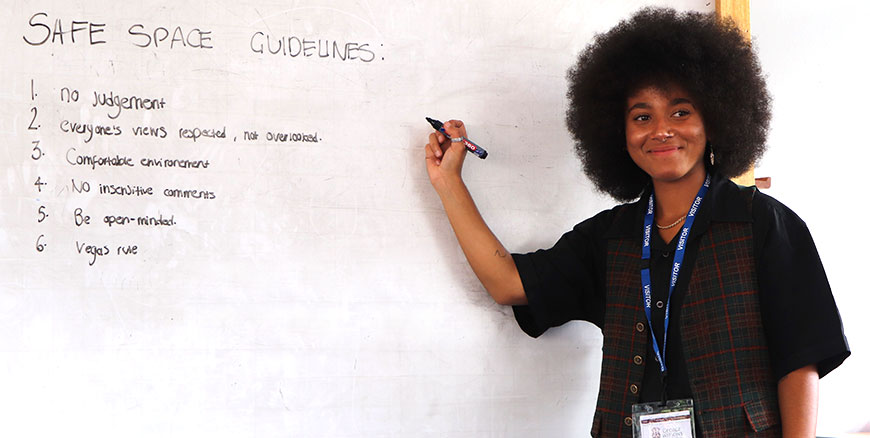 SAFE SPACE GUIDELINES:
1. no judgement
2. everyone's views respected, not overlooked.
3. Comfortable environement
4. No insensitive comments
5. Be open-minded.
6. Vegas rule
VISITOR
VISITOR
VISITOR
VISITOR
VISITOR